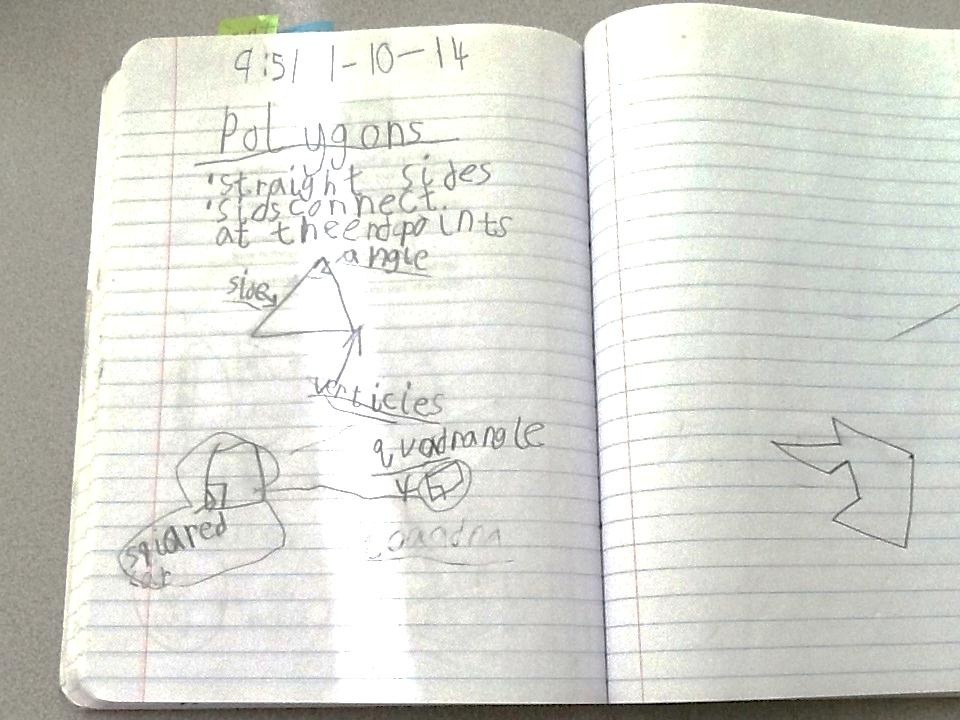 9:51 1-10-14
Polygons
'straight sides
'sids connect.
at the endpoints
angle
side
verticies
quadrangle
4
squared